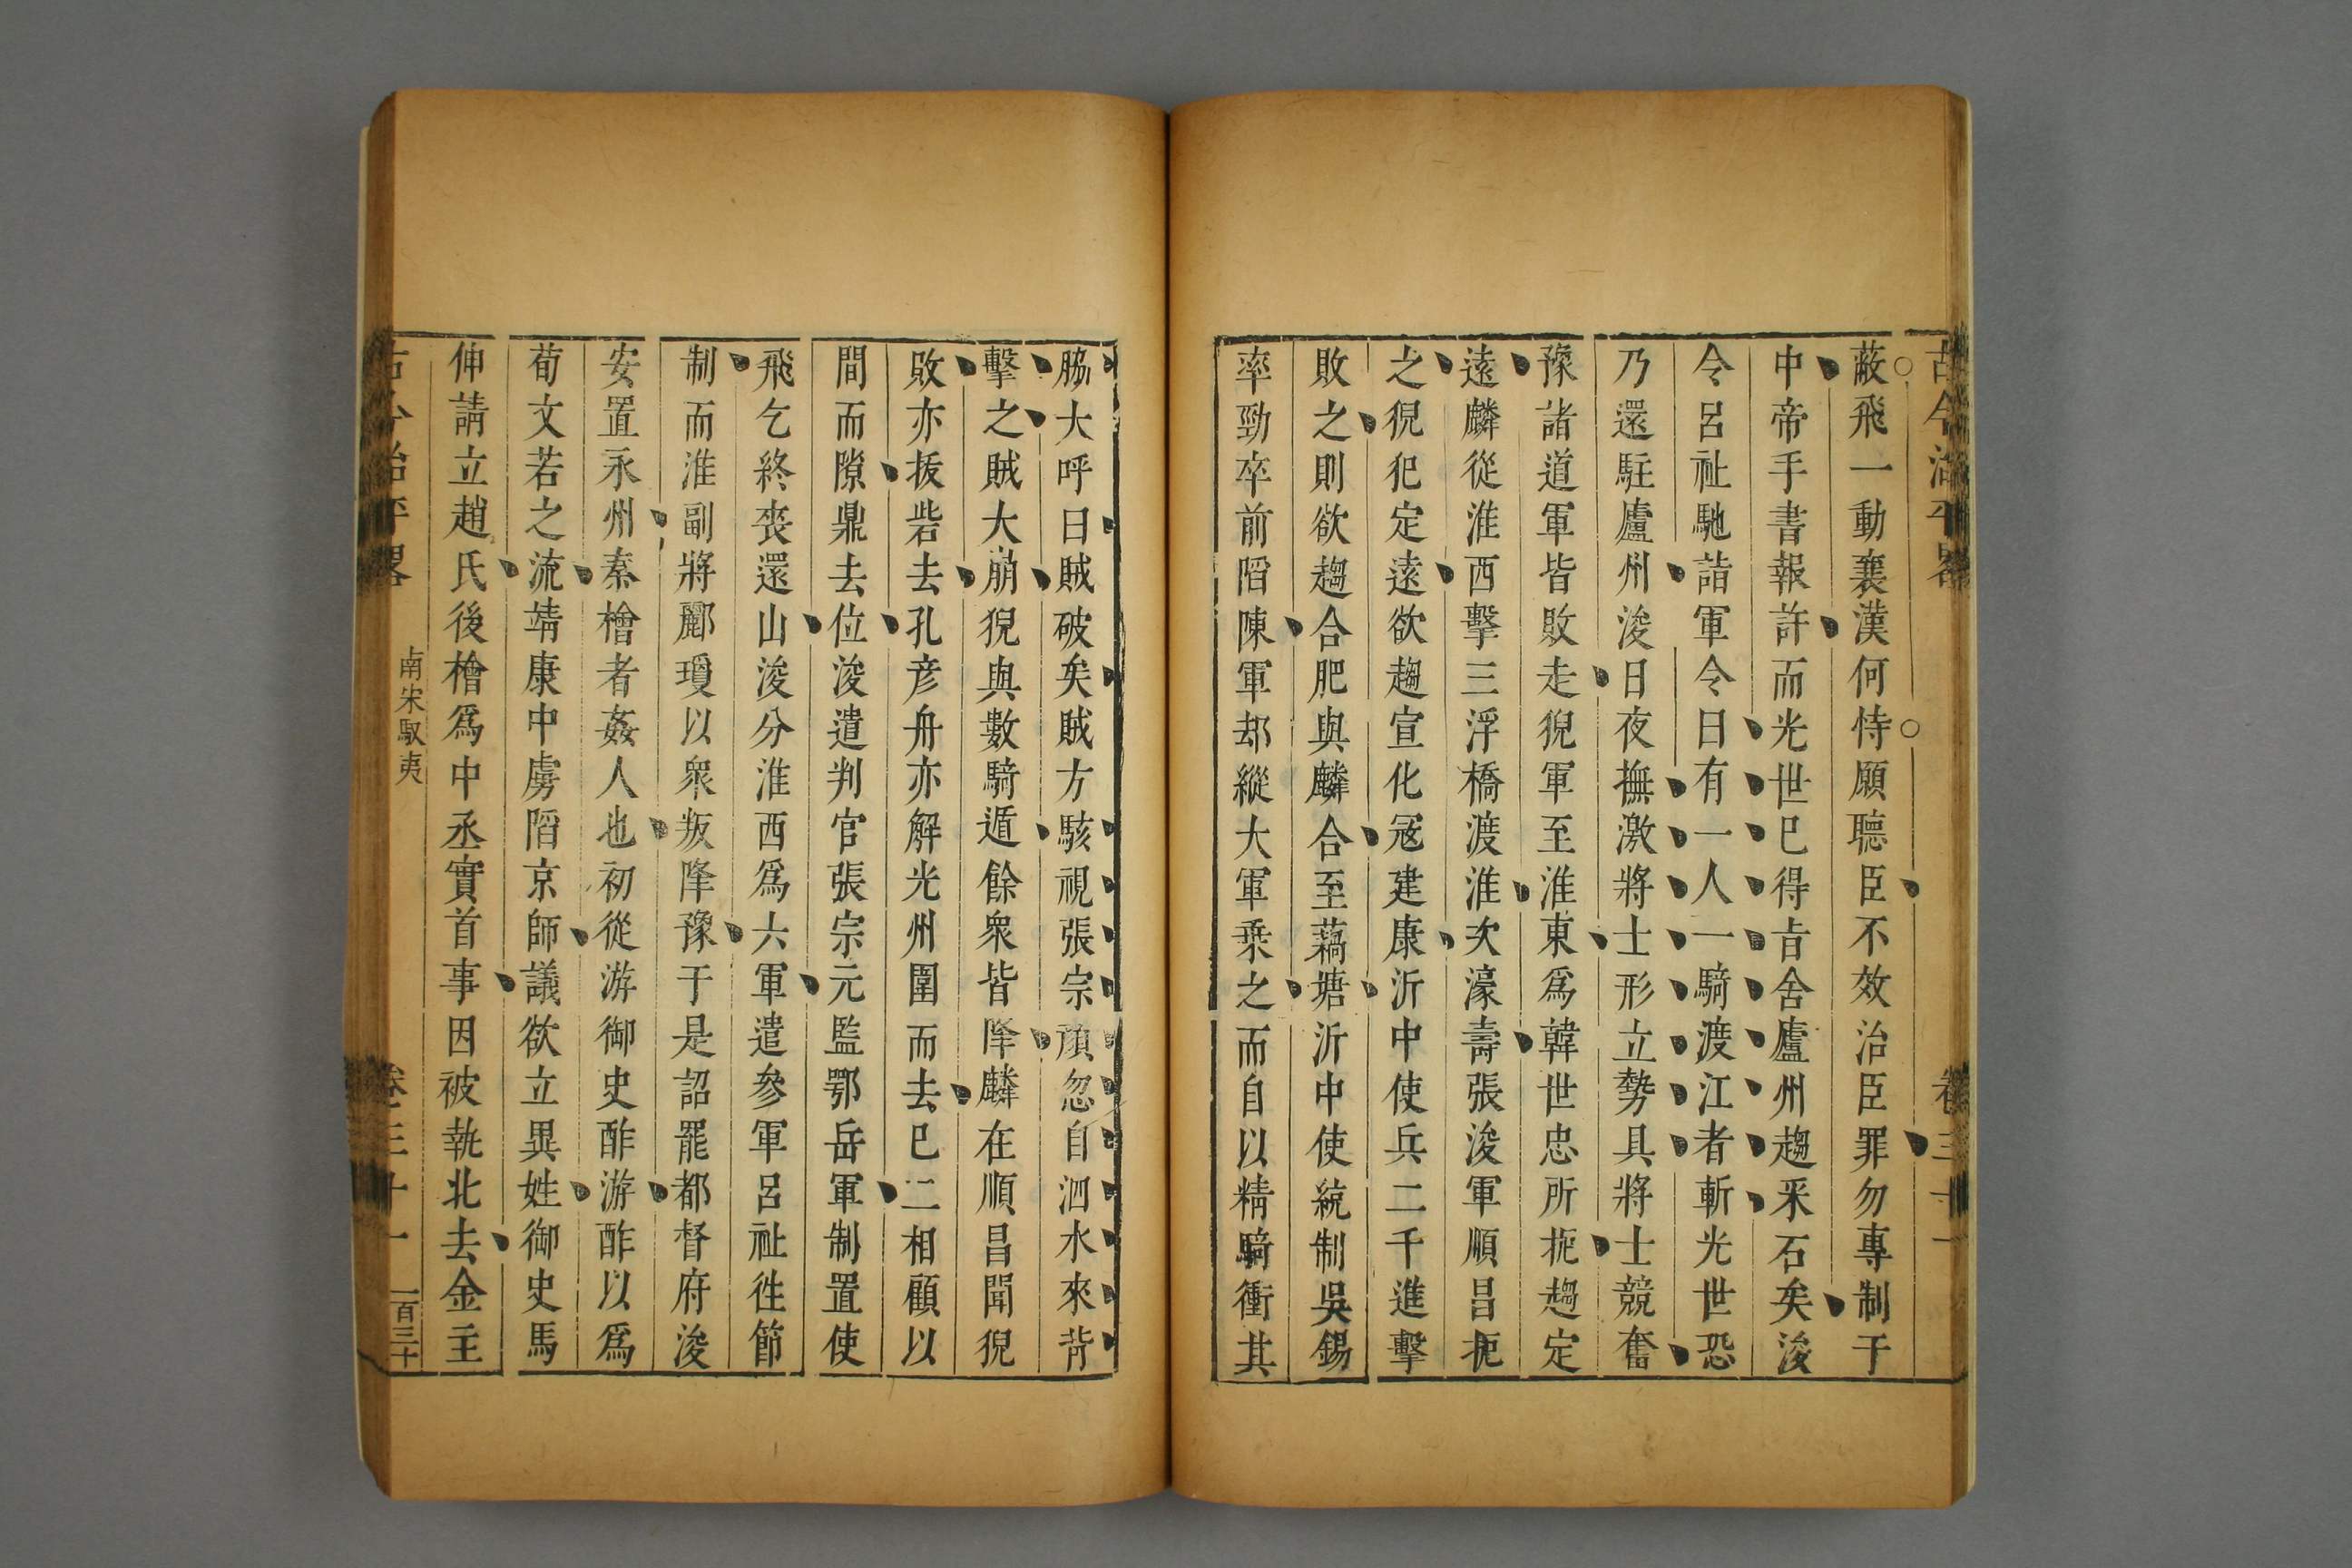 古今治平畧 卷三十一
蔽飛一動襄漢何恃願聽臣不效治臣罪勿專制于
中帝手書報許而光世巳得㫖舍廬州趨采石矣浚
令呂祉馳詣軍令曰有一人一騎渡江者斬光世恐
乃還駐廬州浚日夜撫激將士形立勢具將士競奮
豫諸道軍皆敗走猊軍至淮東爲韓世忠所扼趨定
遠麟從淮西擊三浮橋渡淮次濠壽張浚軍順昌扼
之猊犯定遠欲趨宣化冦建康沂中使兵二千進擊
敗之則欲趨合肥與麟合至藕塘沂中使統制吳錫
率勁卒前陷陳軍却縱大軍乗之而自以精騎衝其
脇大呼曰賊破矣賊方駭視張宗顔忽自泗水來背
擊之賊大崩猊與數騎遁餘衆皆降麟在順昌聞猊
敗亦拔砦去孔彦舟亦解光州圍而去巳二相顧以
間而隙鼎去位浚遣判官張宗元監鄂岳軍制置使
飛乞終喪還山浚分淮西爲六軍遣參軍呂祉徃節
制而淮副將酈瓊以衆叛降豫于是詔罷都督府浚
安置永州秦檜者姦人也初從游御史酢游酢以爲
荀文若之流靖康中虜陷京師議欲立異姓御史馬
伸請立趙氏後檜爲中丞實首事因被執北去金主
古今治平畧 南宋馭夷 卷三十一 一百三十